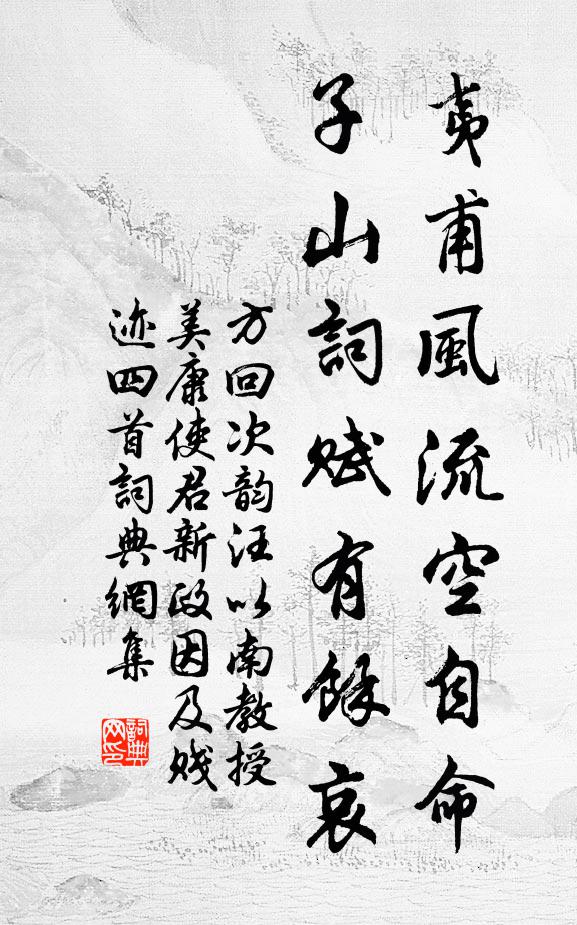 夷甫風流空自命
子山詞赋有餘哀
方回次韵汪以南教授
美康使君新政因及贱
迹四首詞典網集
詞典
网印